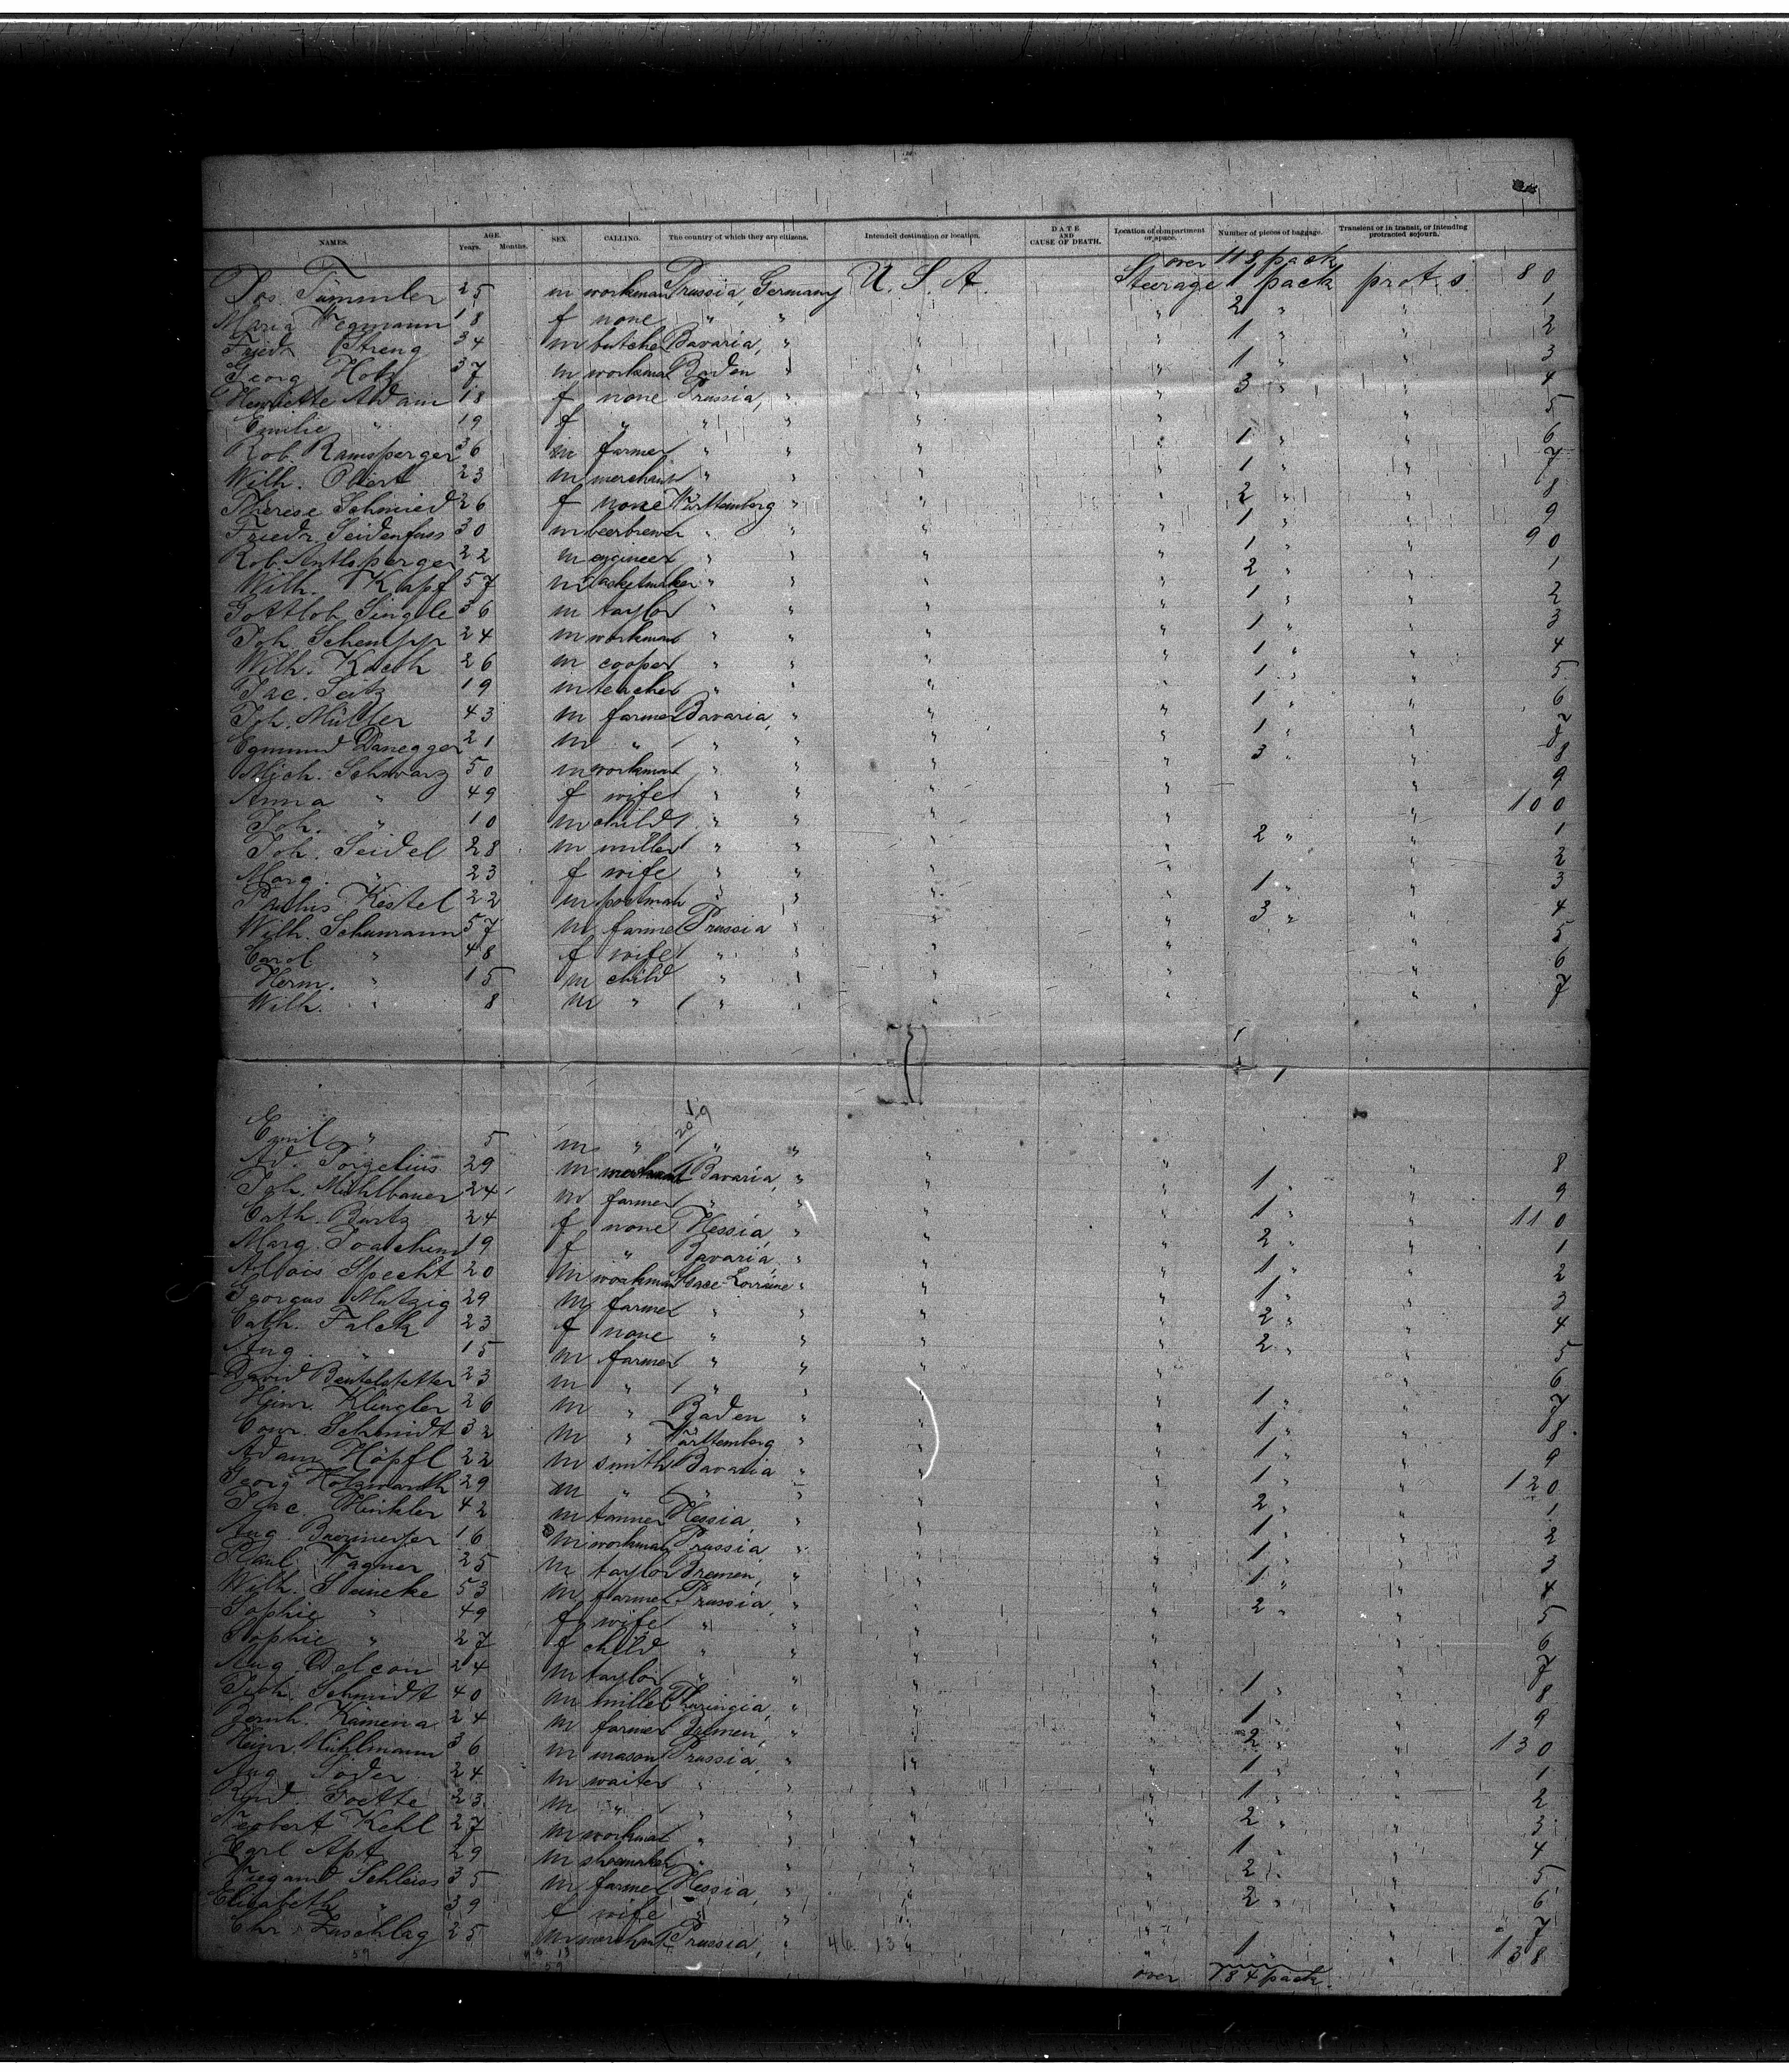 NAMES. AGE. Years. Months. SEX. CALLING. The country of which they are citizens. Intended destination or location. DATE AND CAUSE OF DEATH. Location of compartment or space. Number of pieces of baggage. Transient or in transit, or intending protracted sojourn.
over 118 pack
Jos. Tümmler 25 m workman Prussia, Germany U. S. A. Steerage 1 pack prot. s. 80
Maria Wegmann 18 f none " " " " 2 " " 1
Friedr. Streng 34 m butcher Bavaria, " " " 1 " " 2
Georg Hotz 37 m workman Baden " " " 1 " " 3
Henriette Adam 18 f none Prussia, " " " 3 " " 4
Emilie " 19 f " " " " " " 5
Rob. Ramsperger 36 m farmer " " " " 1 " " 6
Wilh. Obert 23 m merchant " " " " 1 " " 7
Therese Schmied 26 f none Württemberg " " " 2 " " 8
Friedr. Seidenfass 30 m beerbrewer " " " " 1 " " 9
Rob. 22 m engineer " " " " 1 " " 90
Wilh. Kapf 57 m basketmaker " " " " 2 " " 1
Gottlob Singele 36 m taylor " " " " 1 " " 2
Joh. Schempp 24 m workman " " " " 1 " " 3
Wilh. 26 m cooper " " " " 1 " " 4
Jac. Seitz 19 m teacher " " " " 1 " " 5
Joh. Müller 43 m farmer Bavaria, " " " 1 " " 6
Egmund Danegger 21 m " " " " " 1 " " 7
Mich. Schwarz 50 m workman " " " " 3 " " 8
Anna " 49 f wife " " " " " 9
Joh. " 10 m child " " " " " 100
Joh. Seidel 28 m miller " " " " 2 " " 1
Marg. " 23 f wife " " " " " 2
Paulus Kestel 22 m postman " " " " 1 " " 3
Wilh. Schumann 57 m farmer Prussia " " " 3 " " 4
Carol. " 48 f wife " " " " " 5
Herm. " 15 m child " " " " " 6
Wilh. " 8 m " " " " " " 7
Emil " 5 m " " " " " " 8
Ad. 29 m merchant Bavaria, " " " 1 " " 9
Joh. Mühlbauer 24 m farmer " " " " 1 " " 110
Cath. Bartz 24 f none Hessia, " " " 2 " " 1
Marg. Joachim 19 f " Bavaria, " " " 1 " " 2
Alois Specht 20 m workman Alsace Lorraine " " " 1 " " 3
Georgus Mutzig 29 m farmer " " " " 2 " " 4
Cath. Falck 23 f none " " " " 2 " " 5
Aug. " 15 m farmer " " " " " 6
David Beutelstetter 23 m " " " " " 1 " " 7
Heinr. Klingler 26 m " Baden " " " 1 " " 8
Conr. Schmidt 32 m " Württemberg " " " 1 " " 9
Adam Höpfl 22 m smith Bavaria " " " 1 " " 120
Georg Holzwarth 29 m " " " " " 2 " " 1
Isac. Winkler 42 m tanner Hessia, " " " 1 " " 2
Aug. 16 m workman Prussia, " " " 1 " " 3
Paul. Wagner 25 m taylor Bremen, " " " 1 " " 4
Wilh. Steineke 53 m farmer Prussia, " " " 2 " " 5
Sophie " 49 f wife " " " " " 6
Sophie " 27 f child " " " " " 7
Aug. Delcon 24 m taylor " " " " 1 " " 8
Joh. Schmidt 40 m miller Thuringia, " " " 1 " " 9
Bernh. Kamena 24 m farmer Bremen, " " " 2 " " 130
Heinr. Mühlmann 36 m mason Prussia, " " " 1 " " 1
Aug. Soder 24 m waiter " " " " 1 " " 2
Rud. Goette 23 m " " " " " 2 " " 3
Norbert Kehl 27 m workman " " " " 1 " " 4
Carl Apt 29 m shoemaker " " " " 2 " " 5
Wiegand Schleiss 35 m farmer Hessia, " " " 2 " " 6
Elisabeth " 39 f wife " " " " " 7
Chr. Zuschlag 25 m merchant Prussia, " " " 1 " " 138
over 184 pack.